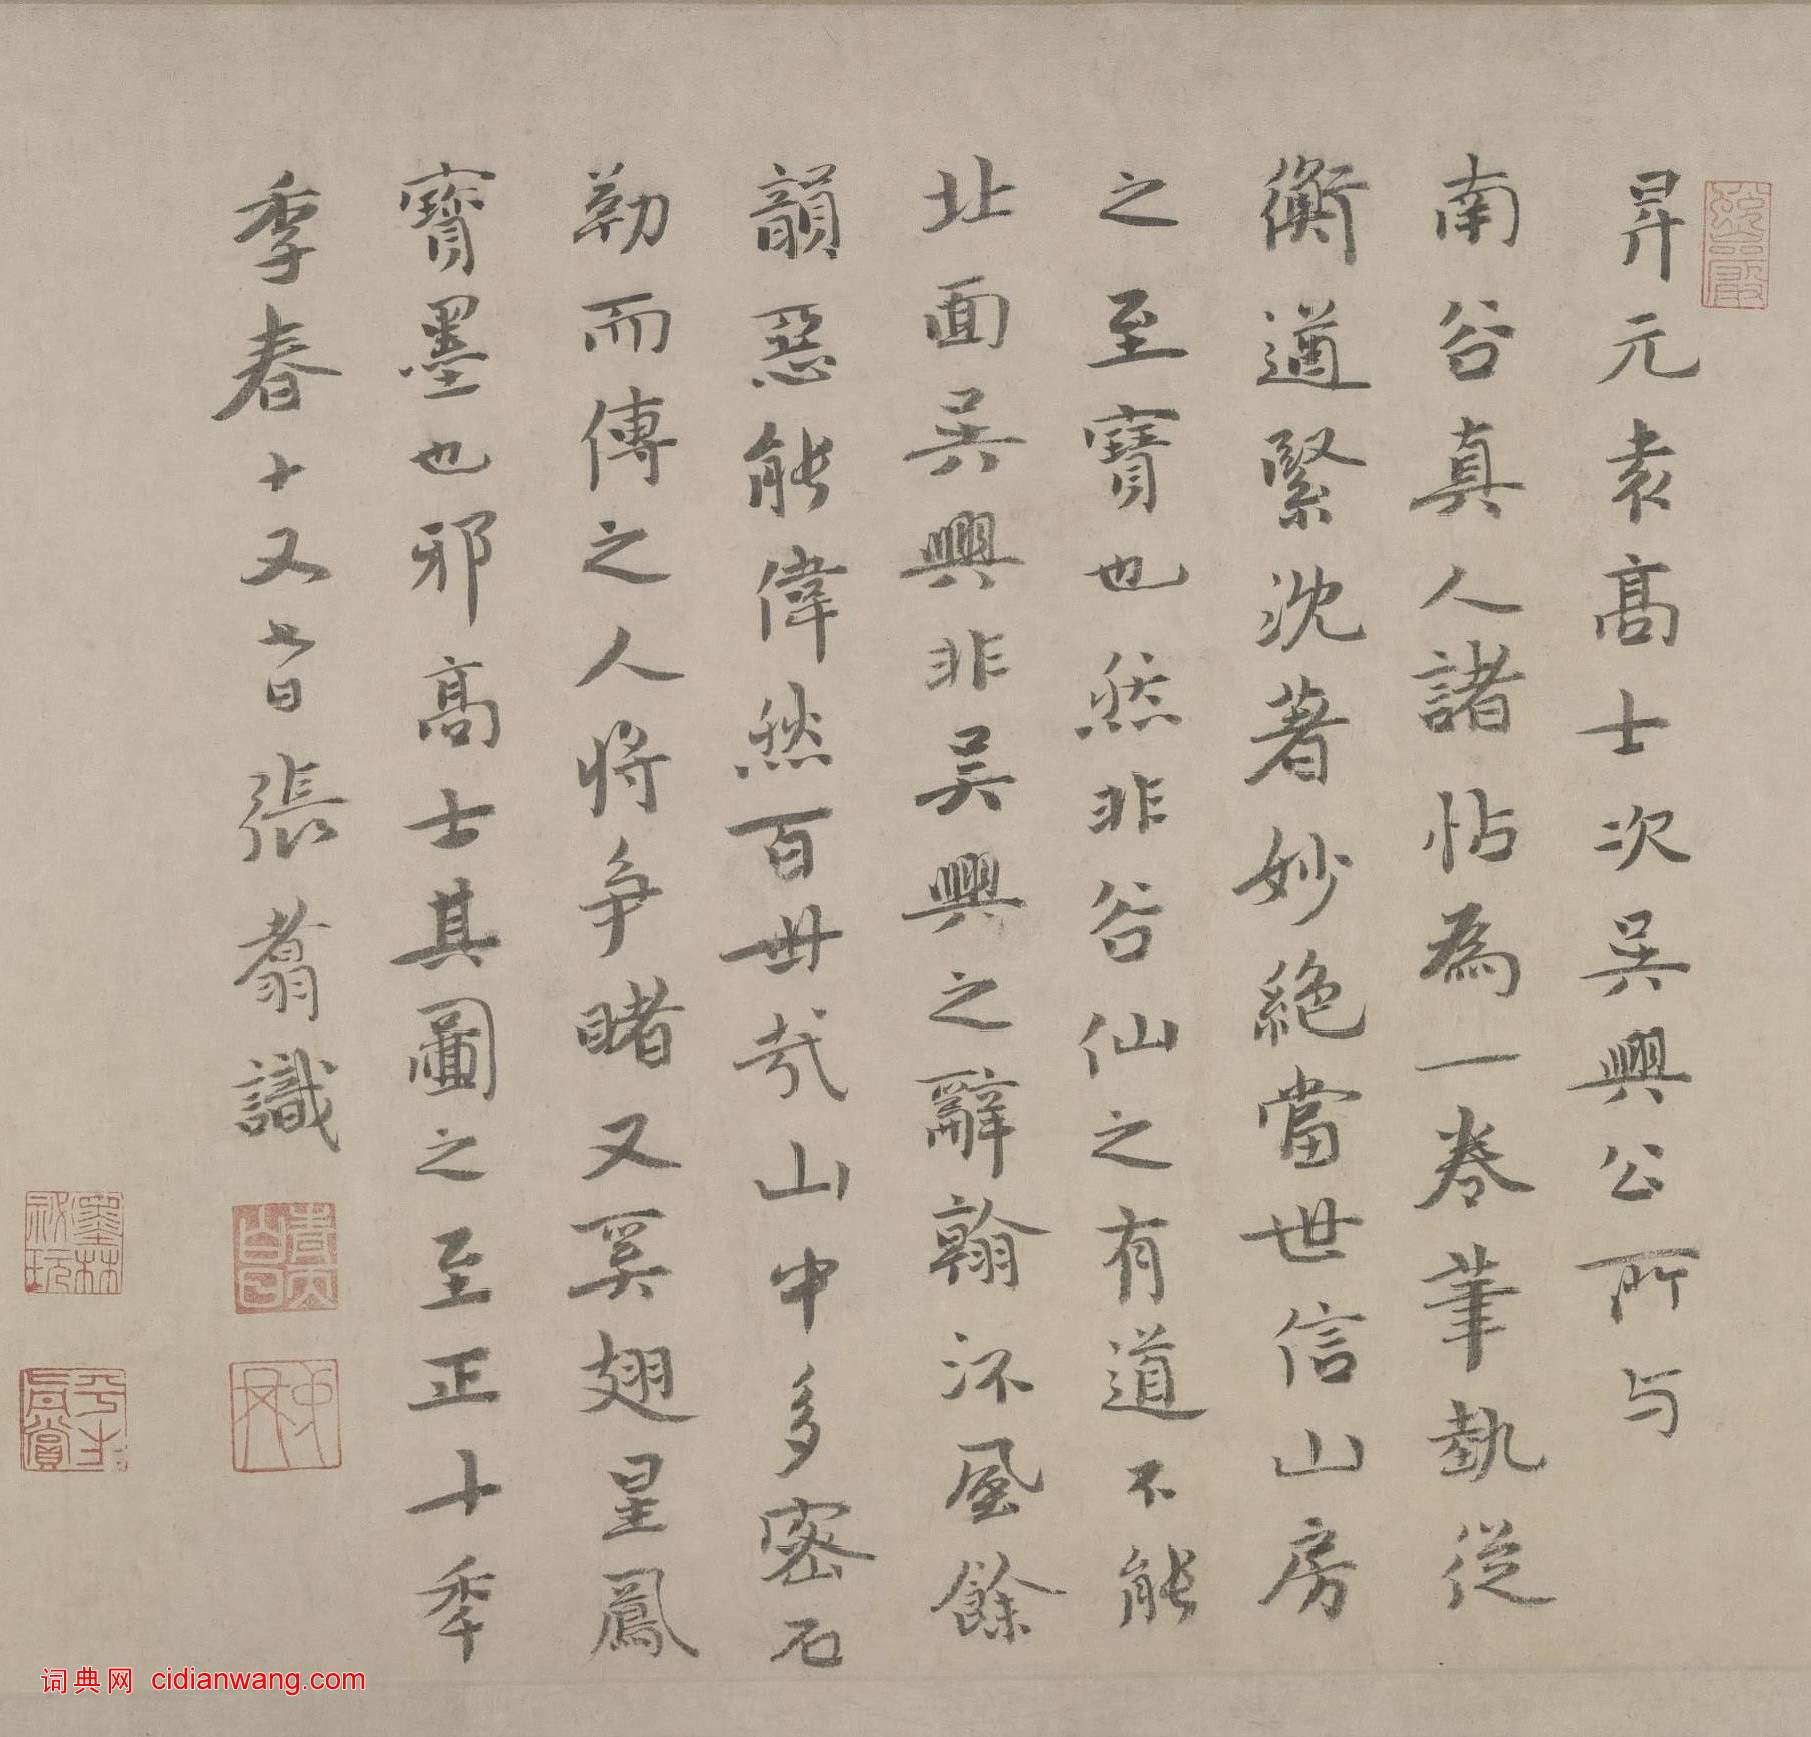 昇元袁高士次吳興公所与
南谷真人諸帖為一卷筆埶從
衡遒緊沈著妙絕當世信山房
之至寶也然非谷仙之有道不能
北面吳興非吳興之辭翰流風餘
韻惡能偉然百世哉山中多密石
勒而傳之人將爭睹又奚翅星鳳
寶墨也邪高士其圖之至正十季
季春十又七日張翥識
詞典网 cidianwang.com